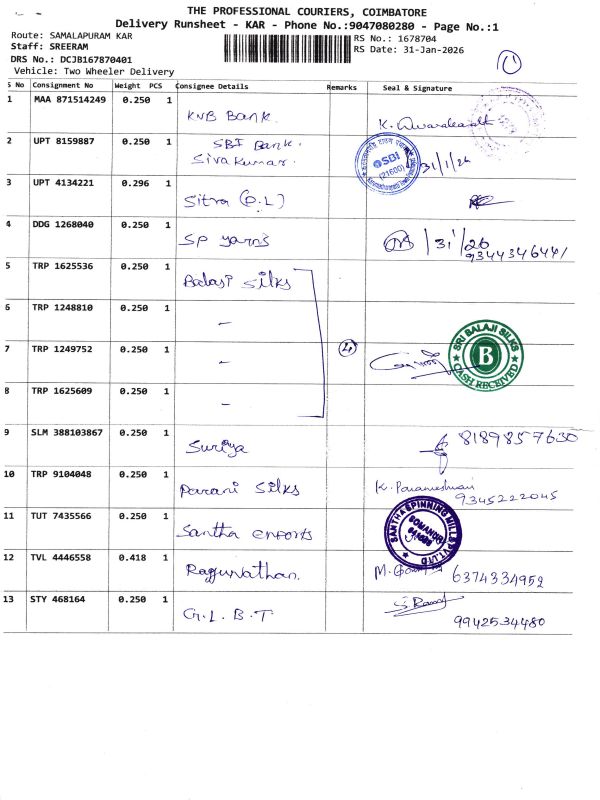 THE PROFESSIONAL COURIERS, COIMBATORE
Delivery Runsheet - KAR - Phone No.:9047080280 - Page No.:1
Route: SAMALAPURAM KAR
Staff: SREERAM
DRS No.: DCJB167870401
Vehicle: Two Wheeler Delivery
RS No.: 1678704
RS Date: 31-Jan-2026
1
S No Consignment No Weight PCS Consignee Details Remarks Seal & Signature
1 MAA 871514249 0.250 1 KVB Bank
2 UPT 8159887 0.250 1 SBI Bank.
Sivakumar. SBI (21600) 31/1/26
3 UPT 4134221 0.296 1 Sitra (P.L)
4 DDG 1268040 0.250 1 SP yarns 31/26
9344346441
5 TRP 1625536 0.250 1 Balaji Silks
6 TRP 1248810 0.250 1 -
7 TRP 1249752 0.250 1 - 4 SRI BALAJI SILKS B CASH RECEIVED
8 TRP 1625609 0.250 1 -
9 SLM 388103867 0.250 1 Suriya 8189857630
10 TRP 9104048 0.250 1 Parani Silks K. Parameshwari
9345222045
11 TUT 7435566 0.250 1 Santha exports SANTHA SPINNING MILLS PVT.LTD
12 TVL 4446558 0.418 1 Ragunathan. 6374334952
13 STY 468164 0.250 1 G.L.B.T
9942534480